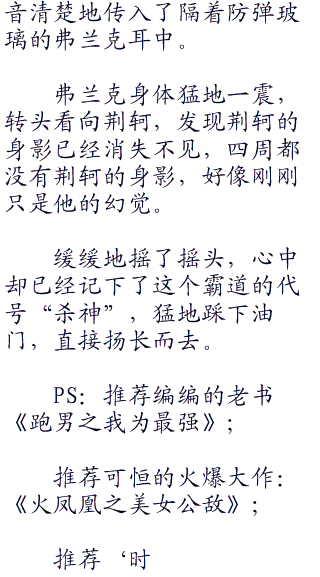 音清楚地传入了隔着防弹玻
璃的弗兰克耳中。
弗兰克身体猛地一震，
转头看向荆轲，发现荆轲的
身影已经消失不见，四周都
没有荆轲的身影，好像刚刚
只是他的幻觉。
缓缓地摇了摇头，心中
却已经记下了这个霸道的代
号“杀神”，猛地踩下油
门，直接扬长而去。
PS：推荐编编的老书
《跑男之我为最强》；
推荐可恒的火爆大作：
《火凤凰之美女公敌》；
推荐‘时